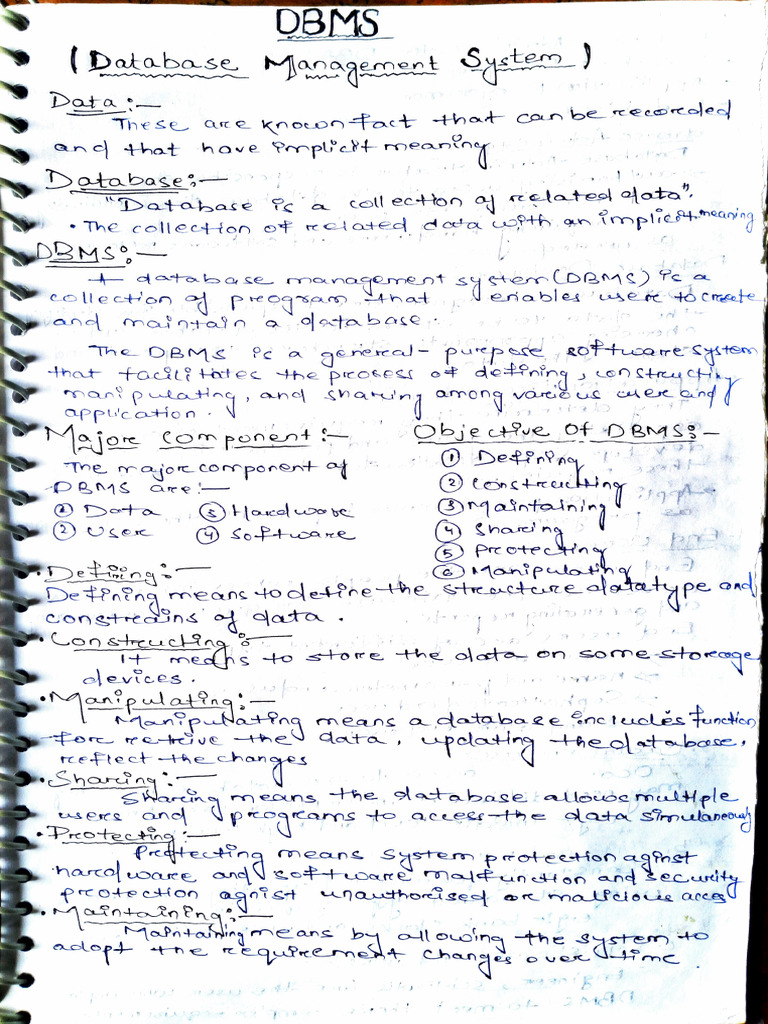 DBMS
(Database Management System)
Data:-
These are known fact that can be recorded
and that have implicit meaning
Database:-
"Database is a collection of related data".
• The collection of related data with an implicit meaning
DBMS:-
A database management system (DBMS) is a
collection of program that enables user to create
and maintain a database.
The DBMS is a general-purpose software system
that facilitates the process of defining, constructing
manipulating, and sharing among various user and
application.
Major component:-
The major component of
DBMS are:-
① Data ③ Hardware
② User ④ Software
Objective Of DBMS:-
① Defining
② Constructing
③ Maintaining
④ Sharing
⑤ Protecting
⑥ Manipulating
• Defining:-
Defining means to define the structure datatype and
constrains of data.
• Constructing:-
It means to store the data on some storage
devices.
• Manipulating:-
Manipulating means a database includes function
for retrive the data, updating the database,
reflect the changes
• Sharing:-
Sharing means the database allows multiple
users and programs to access the data simulaneously
• Protecting:-
Protecting means system protection aginst
hardware and software malfunction and security
protection agnist unauthorised or malicious acces
• Maintaining:-
Maintaining means by allowing the system to
adopt the requirement changes over time.